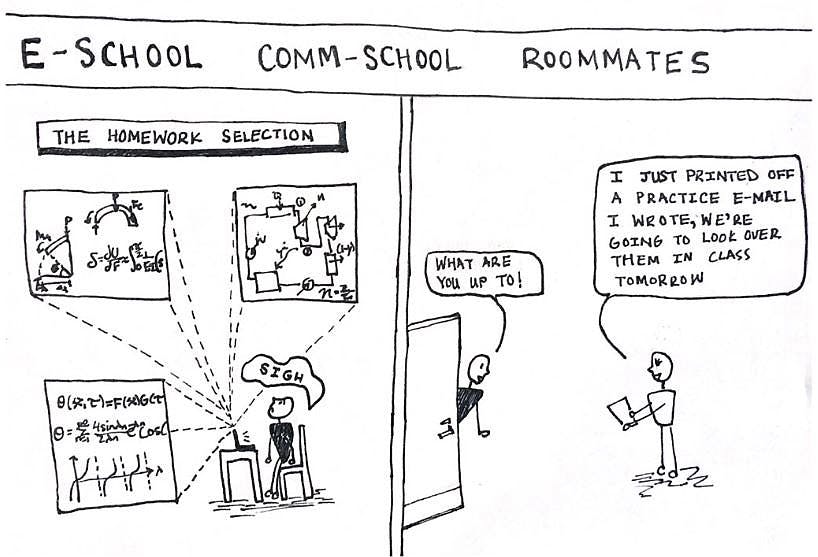 E-SCHOOL COMM-SCHOOL ROOMMATES
THE HOMEWORK SELECTION
P
δ = dU/dF ≈
n
θ(x,τ)=F(x)G(τ
θ=
4sinλn
2λn
cos(
λ
SIGH
WHAT ARE
YOU UP TO!
I JUST PRINTED OFF
A PRACTICE E-MAIL
I WROTE, WE'RE
GOING TO LOOK OVER
THEM IN CLASS
TOMORROW